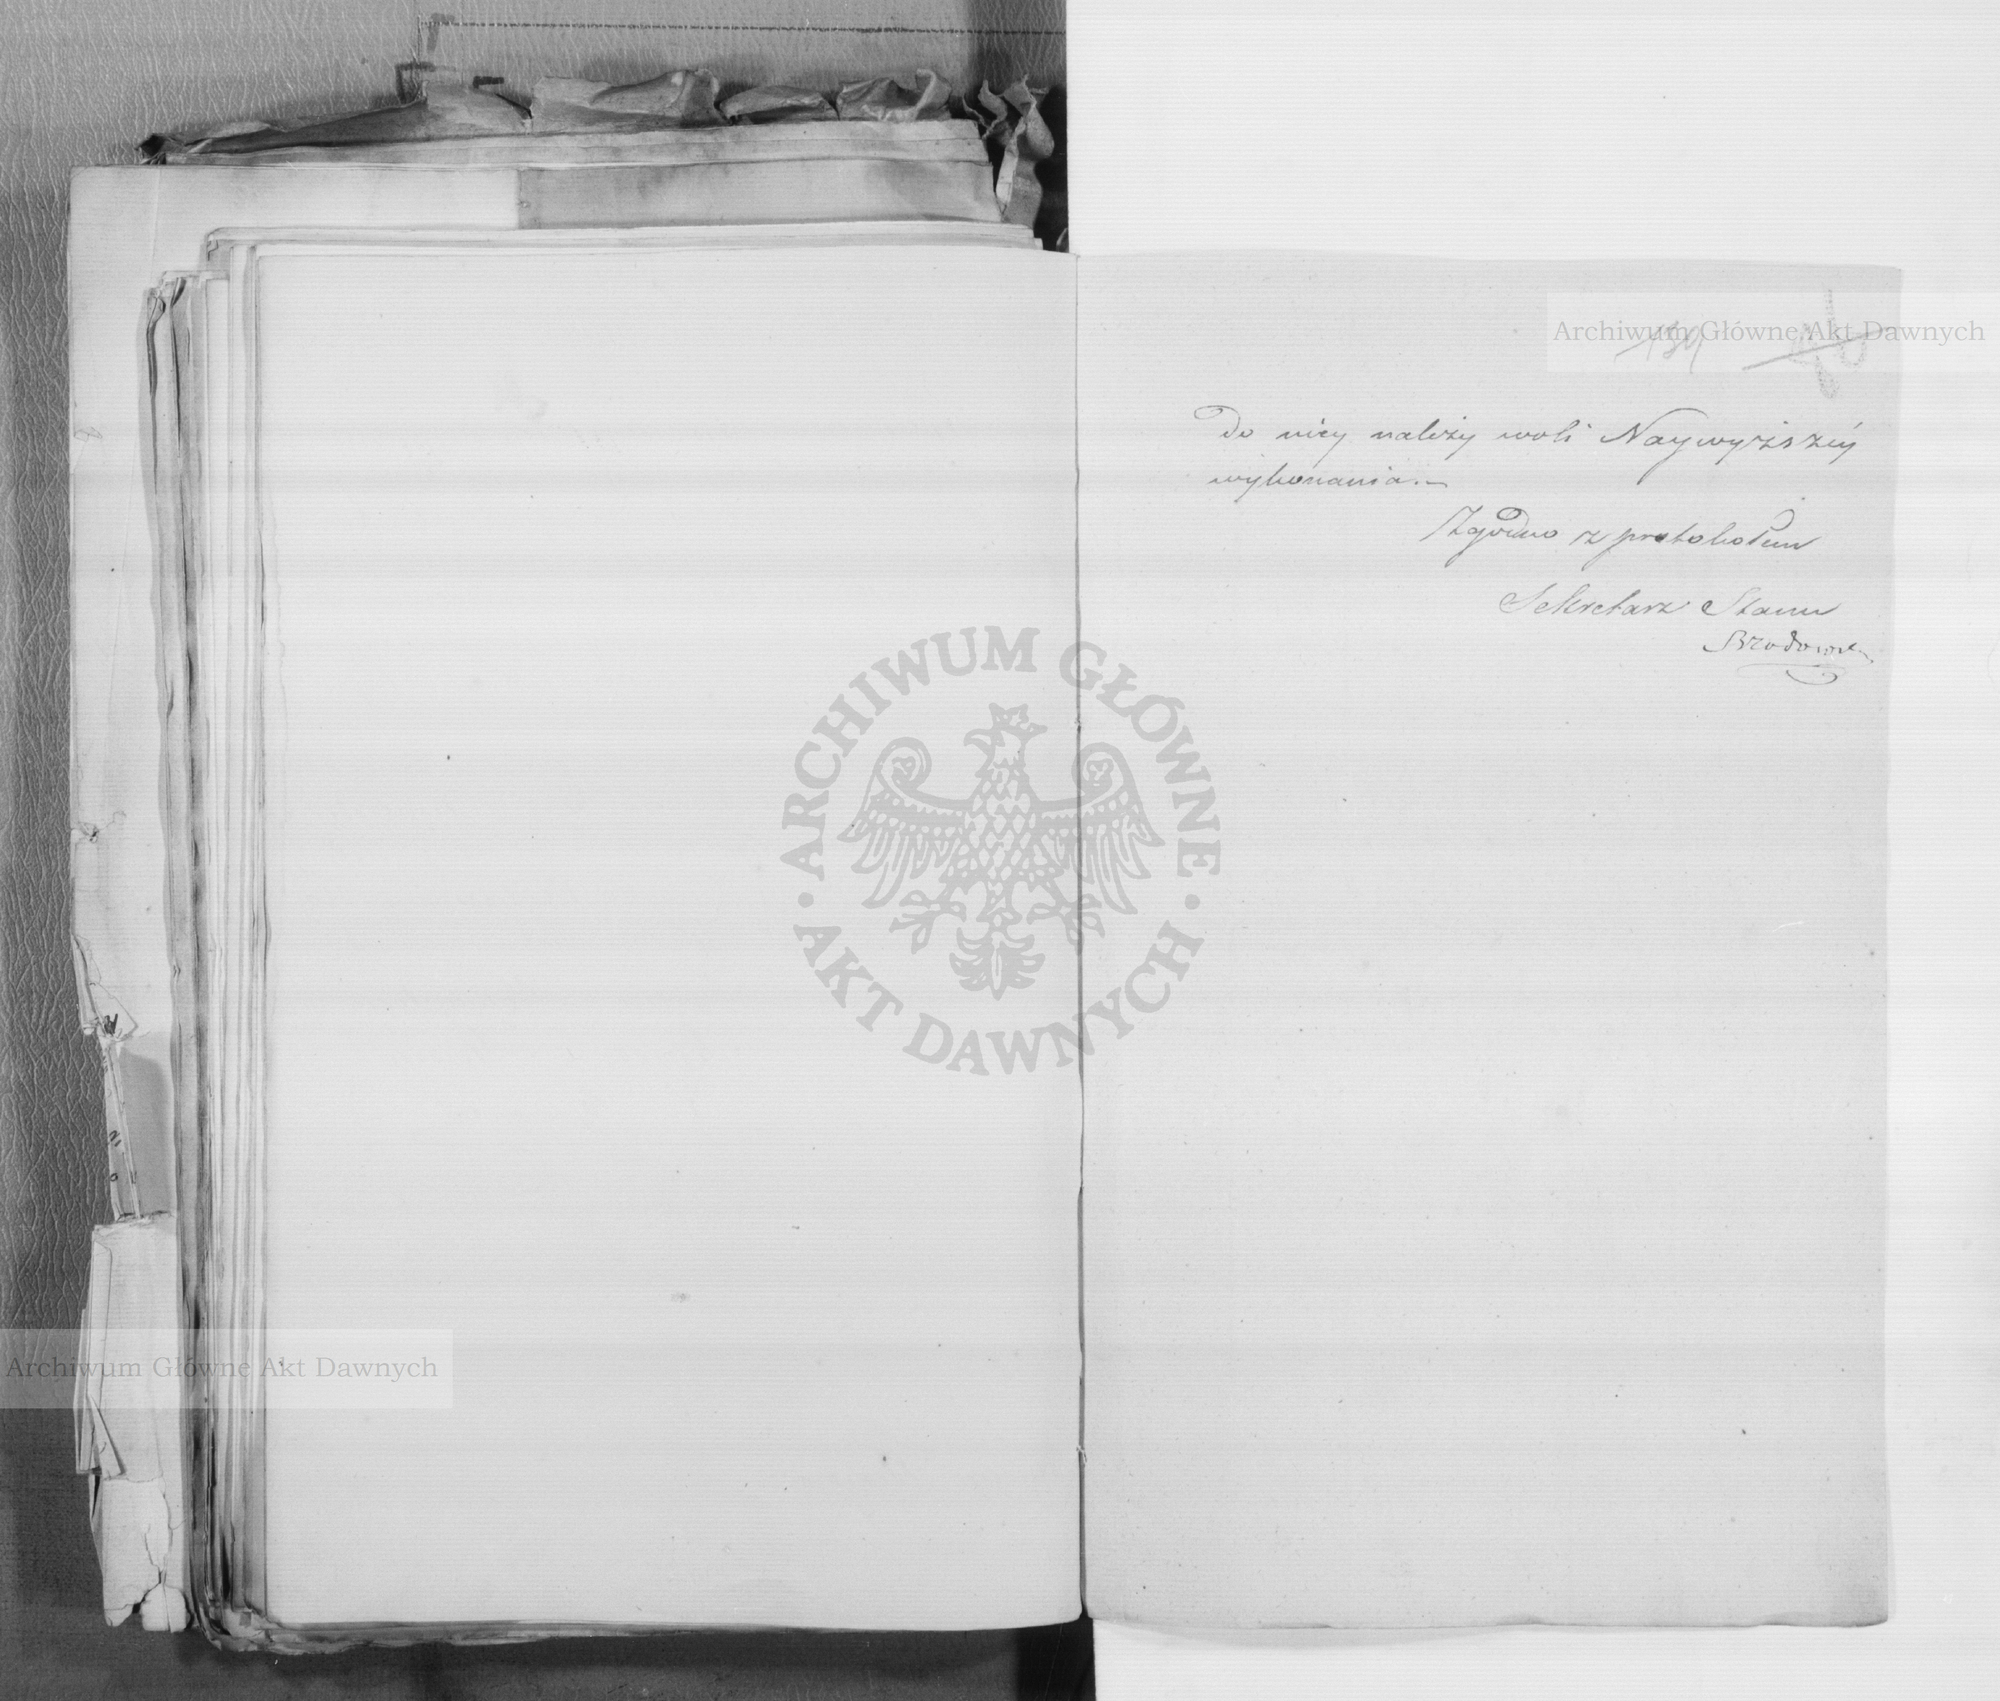 Archiwum Główne Akt Dawnych
139
do niey należy woli Naywyższéy
wykonania.—
Zgodno z protokołem
Sekretarz Stanu
Brodowski
ARCHIWUM GŁÓWNE
AKT DAWNYCH
Archiwum Główne Akt Dawnych